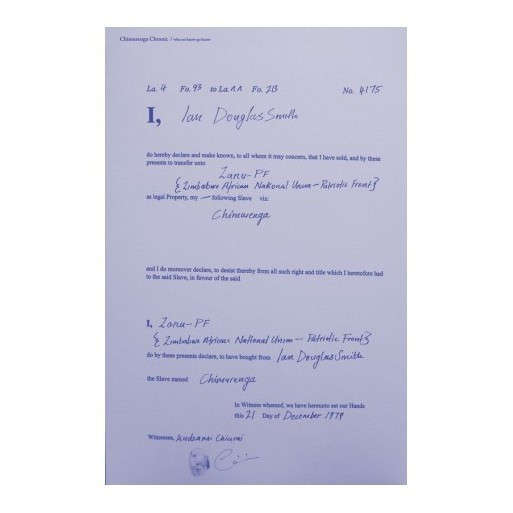 Chimurenga Chronic / who no know go know
La. 4 Fo. 93 to La. 11 Fo. 213 No. 4175
I, Ian Douglas Smith
do hereby declare and make known, to all whom it may concern, that I have sold, and by these
presents to transfer unto
Zanu-PF
{Zimbabwe African National Union - Patriotic Front}
as legal Property, my — following Slave viz:
Chimurenga
and I do moreover declare, to desist thereby from all such right and title which I heretofore had
to the said Slave, in favour of the said
I, Zanu-PF
{Zimbabwe African National Union - Patriotic Front}
do by these presents declare, to have bought from Ian Douglas Smith
the Slave named Chimurenga
In Witness whereof, we have hereunto set our Hands
this 21 Day of December 1979
Witnesses, Kudzanai Chiurai